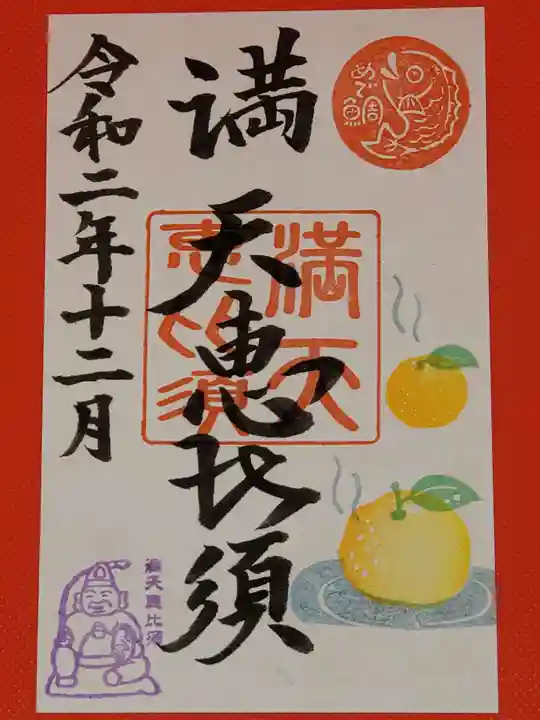 めで鯛
満天恵比須
満天
恵比須
令和二年十二月
満天恵比須